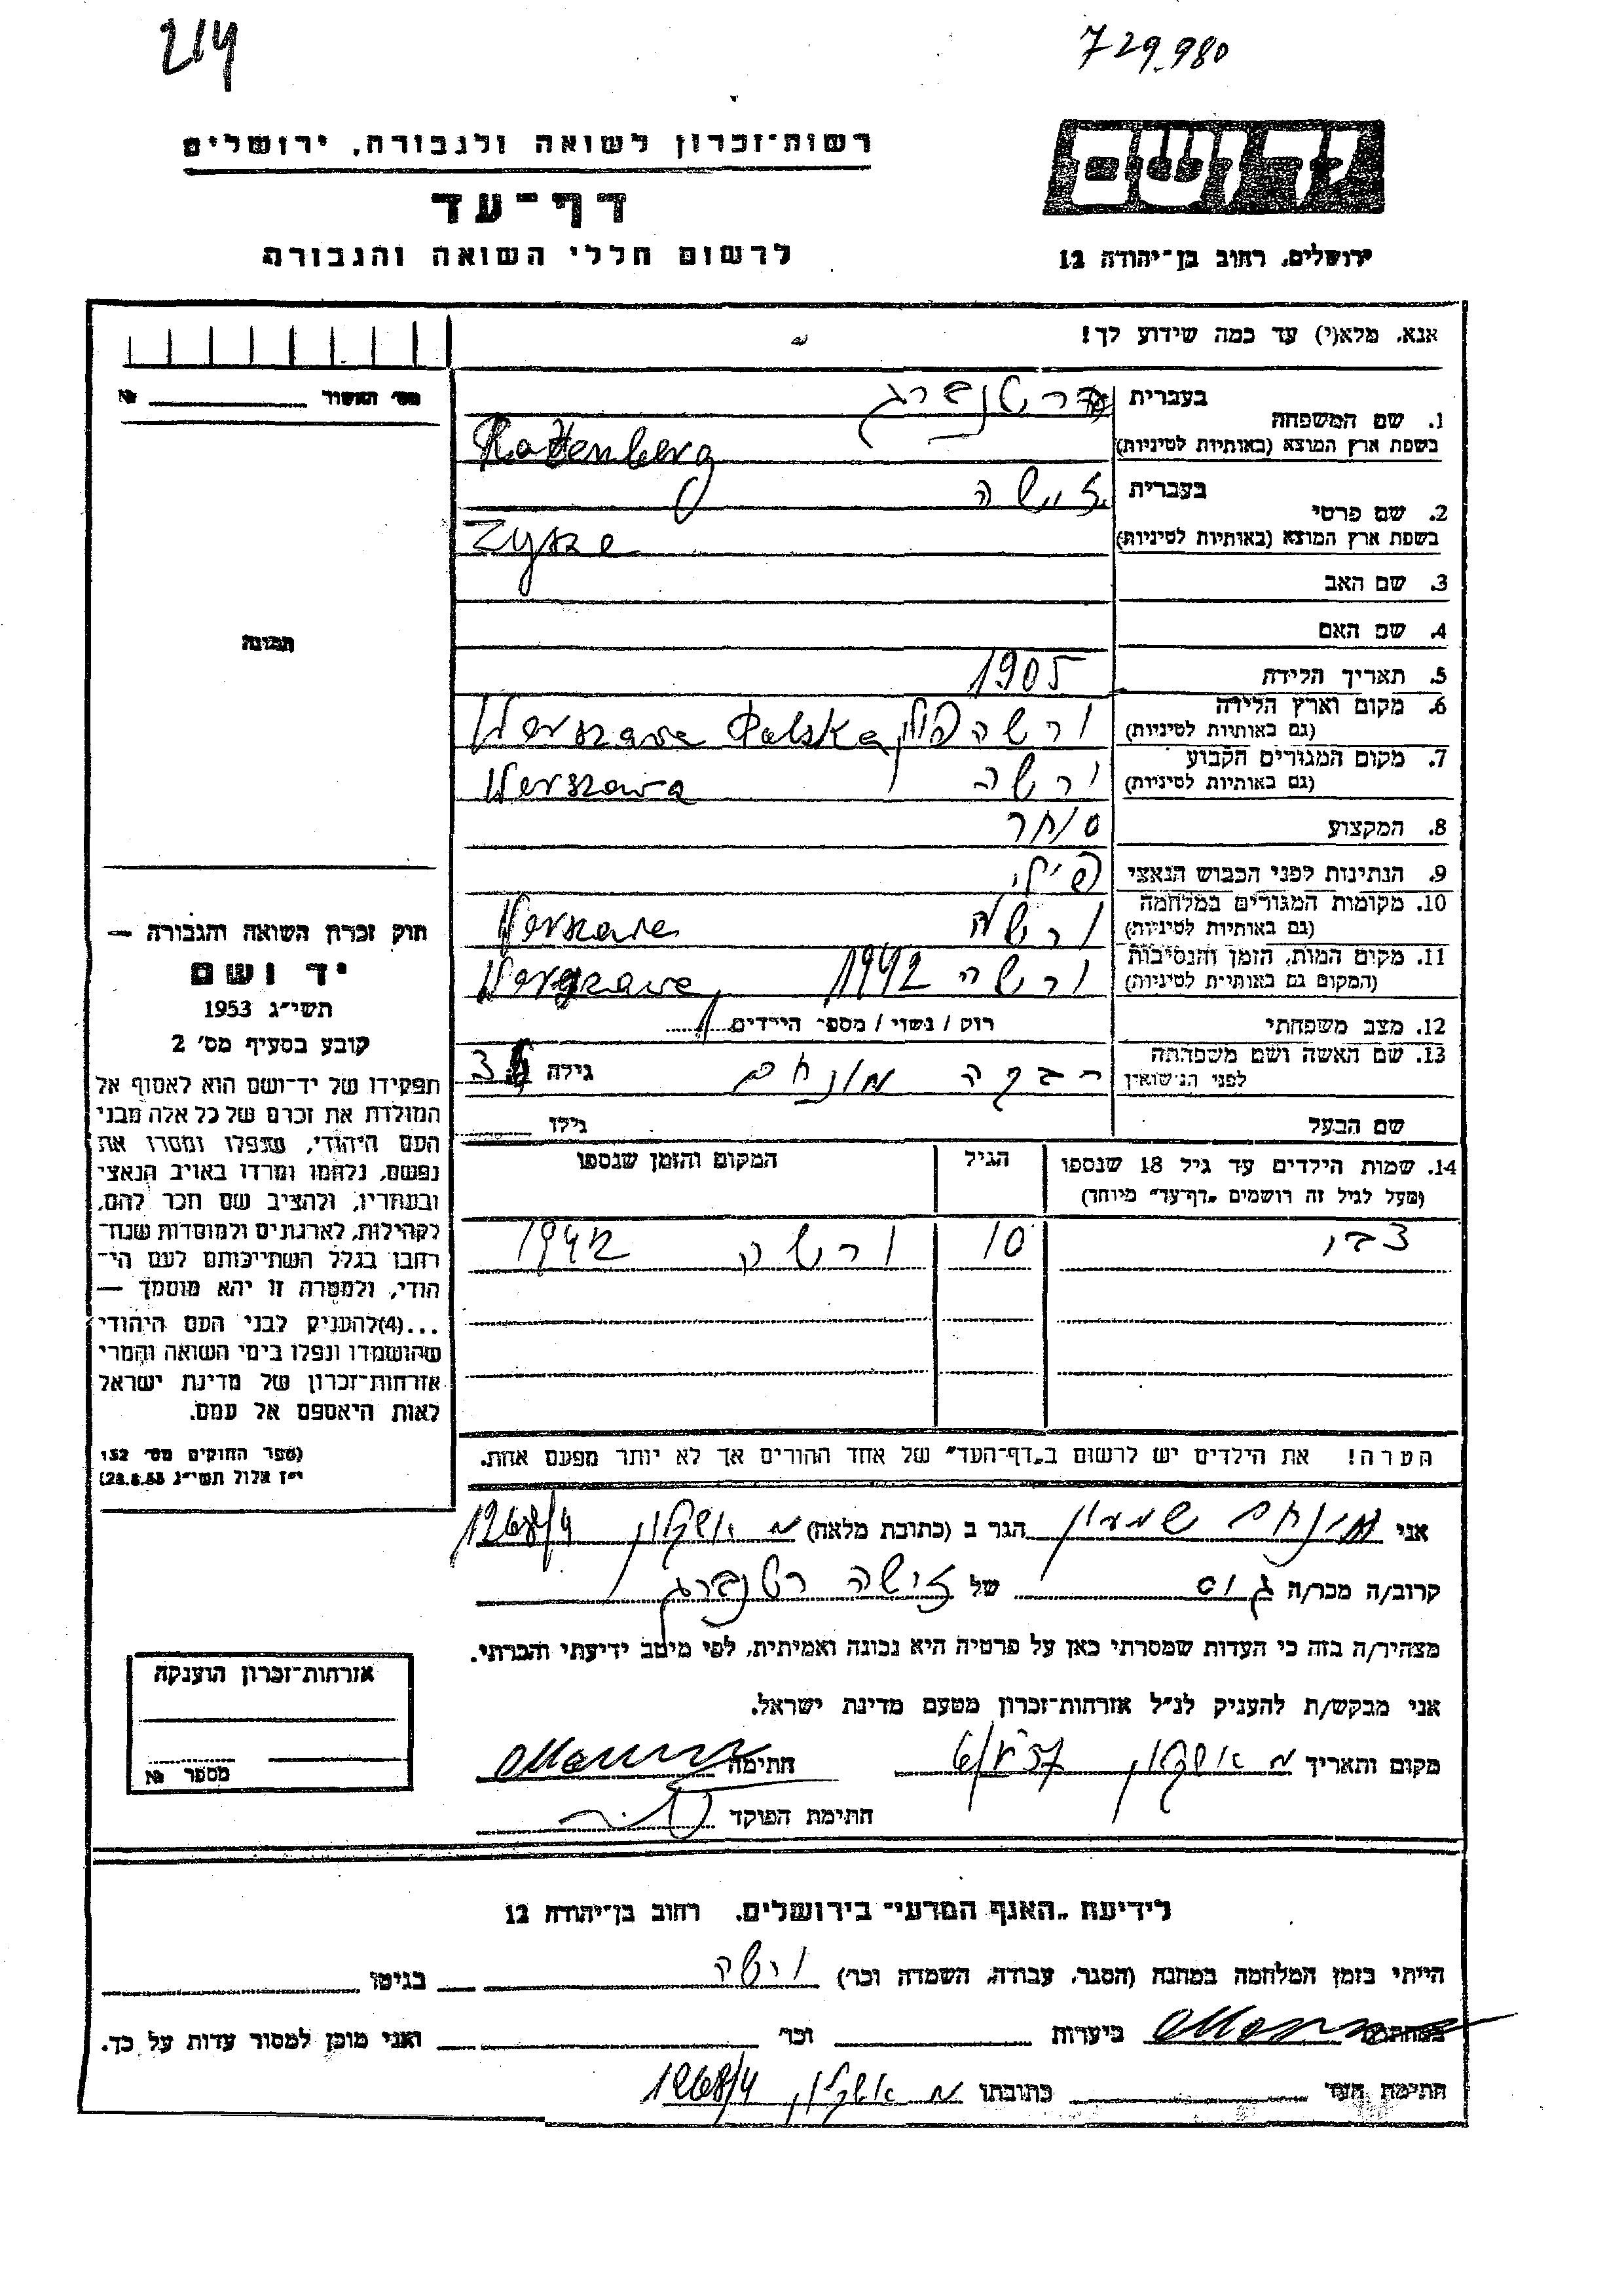 214
729.980
רשות־זכרון לשואה ולגבורה, ירושלים
דף־עד
לרשום חללי השואה והגבורה
ירושלים, רחוב בן־יהודה 12
אנא, מלא(י) עד כמה שידוע לך!
מס' האשור № 
1. שם המשפחה בעברית רטנברג
בשפת ארץ המוצא (באותיות לטיניות) Rattenberg
2. שם פרטי בעברית זישה
בשפת ארץ המוצא (באותיות לטיניות) Zysze
3. שם האב
4. שם האם
5. תאריך הלידה 1905
6. מקום וארץ הלידה (גם באותיות לטיניות) ורשה פולין Warszawa Polska
7. מקום המגורים הקבוע (גם באותיות לטיניות) ורשה Warszawa
8. המקצוע סוחר
9. הנתינות לפני הכבוש הנאצי פולני
10. מקומות המגורים במלחמה (גם באותיות לטיניות) ורשה Warszawa
11. מקום המות, הזמן והנסיבות (המקום גם באותיות לטיניות) ורשה 1942 Warszawa
12. מצב משפחתי רווק / נשוי / מספר הילדים 1
13. שם האשה ושם משפחתה לפני הנישואין רבקה מונחם גילה
שם הבעל גילו
14. שמות הילדים עד גיל 18 שנספו הגיל המקום והזמן שנספו
(מעל לגיל זה רושמים "דף־עד" מיוחד)
צבי 10 ורשה 1942
הערה! את הילדים יש לרשום ב"דף־העד" של אחד ההורים אך לא יותר מפעם אחת.
תמונה
חוק זכרון השואה והגבורה —
יד ושם
תשי"ג 1953
קובע בסעיף מס' 2
תפקידו של יד־ושם הוא לאסוף אל
המולדת את זכרם של כל אלה מבני
העם היהודי, שנפלו ומסרו את
נפשם, נלחמו ומרדו באויב הנאצי
ובעוזריו, ולהציב שם וזכר להם,
לקהילות, לארגונים ולמוסדות שנח־
רבו בגלל השתייכותם לעם הי־
הודי, ולמטרה זו יהא מוסמך —
...(4) להעניק לבני העם היהודי
שהושמדו ונפלו בימי השואה והמרי
אזרחות־זכרון של מדינת ישראל
לאות היאספם אל עמם.
(ספר החוקים מס' 132
י"ז אלול תשי"ג 28.8.53)
אני שמעון הגר ב (כתובת מלאה) מ אשקלון 1268/4
קרוב/ה מכר/ה גיס של זישה רטנברג
מצהיר/ה בזה כי העדות שמסרתי כאן על פרטיה היא נכונה ואמיתית, לפי מיטב ידיעתי והכרתי.
אני מבקש/ת להעניק לנ"ל אזרחות־זכרון מטעם מדינת ישראל.
מקום ותאריך מ אשקלון 6/V 57 חתימה
חתימת הפוקד
אזרחות־זכרון הוענקה
מספר №
לידיעת "האגף המדעי" בירושלים, רחוב בן־יהודה 12
הייתי בזמן המלחמה במחנה (הסגר, עבודה, השמדה וכו') ורשה בגיטו
במחתרת ביערות וכו' ואני מוכן למסור עדות על כך.
חתימת העד כתובתו מ אשקלון 1268/4